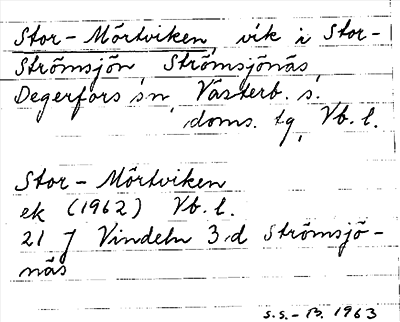 Stor-Mörtviken, vik i Stor-
Strömsjön, Strömsjönäs,
Degerfors sn, Västerb. s.
doms. tg, Vb. l.
Stor-Mörtviken
ek (1962) Vb. l.
21 J Vindeln 3.d Strömsjö-
näs
s.s.-B. 1963